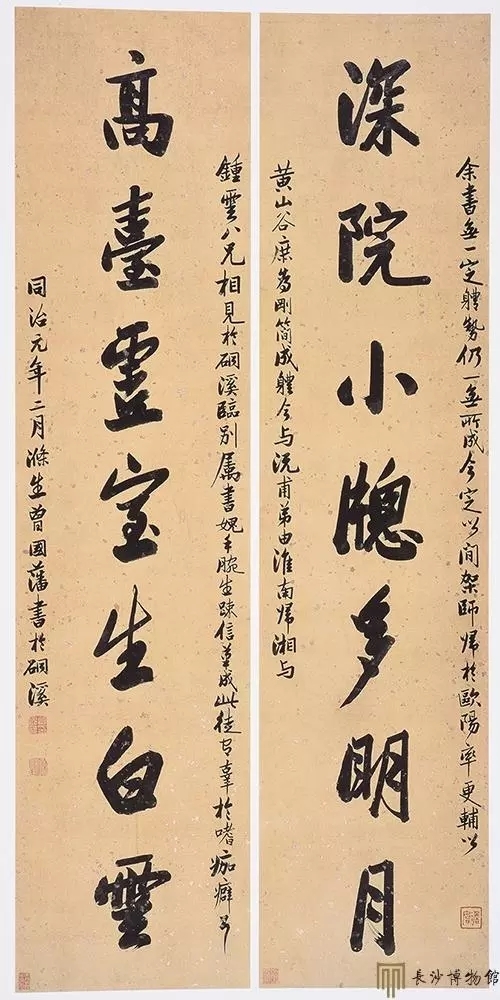 余書無一定體勢仍一無所成今定以間架師歸於歐陽率更輔以
深院小牕多明月
黄山谷庶為剛簡成體今与沅甫弟由淮南帰湘与
鍾雲八兄相見於硐溪臨別属書媿手腕生疎信筆成此徒有辜於嗜痂癖耳
高臺虛室生白雲
同治元年二月滌生曾國藩書於硐溪
長沙博物館